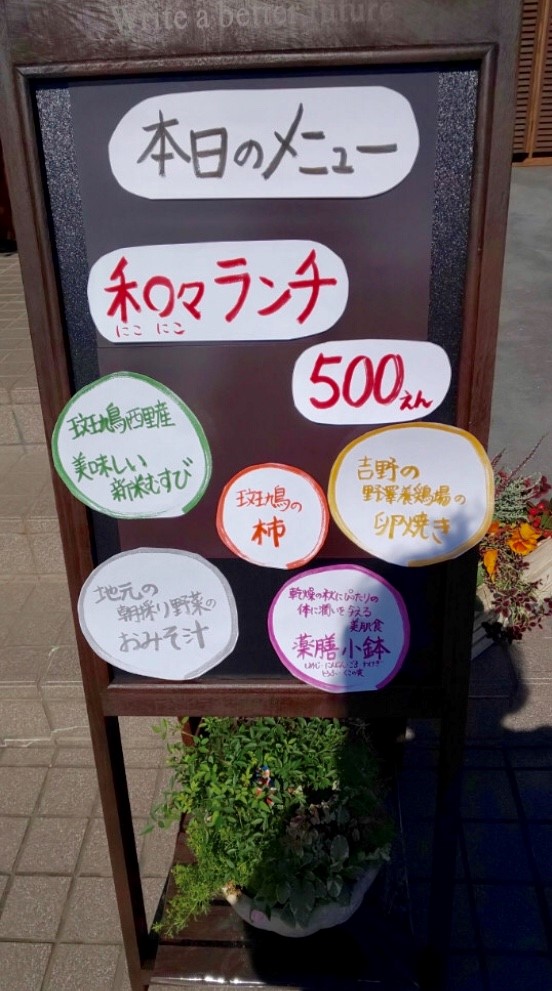 Write a better future
本日のメニュー
和々ランチ
にこ にこ
500えん
斑鳩西里産
美味しい
新米むすび
斑鳩の
柿
吉野の
野澤養鶏場の
卵焼き
地元の
朝採り野菜の
おみそ汁
乾燥の秋にぴったりの
体に潤いを与える
美肌食
薬膳小鉢
しめじ・にんじん・ごま
とうふ・くこの実